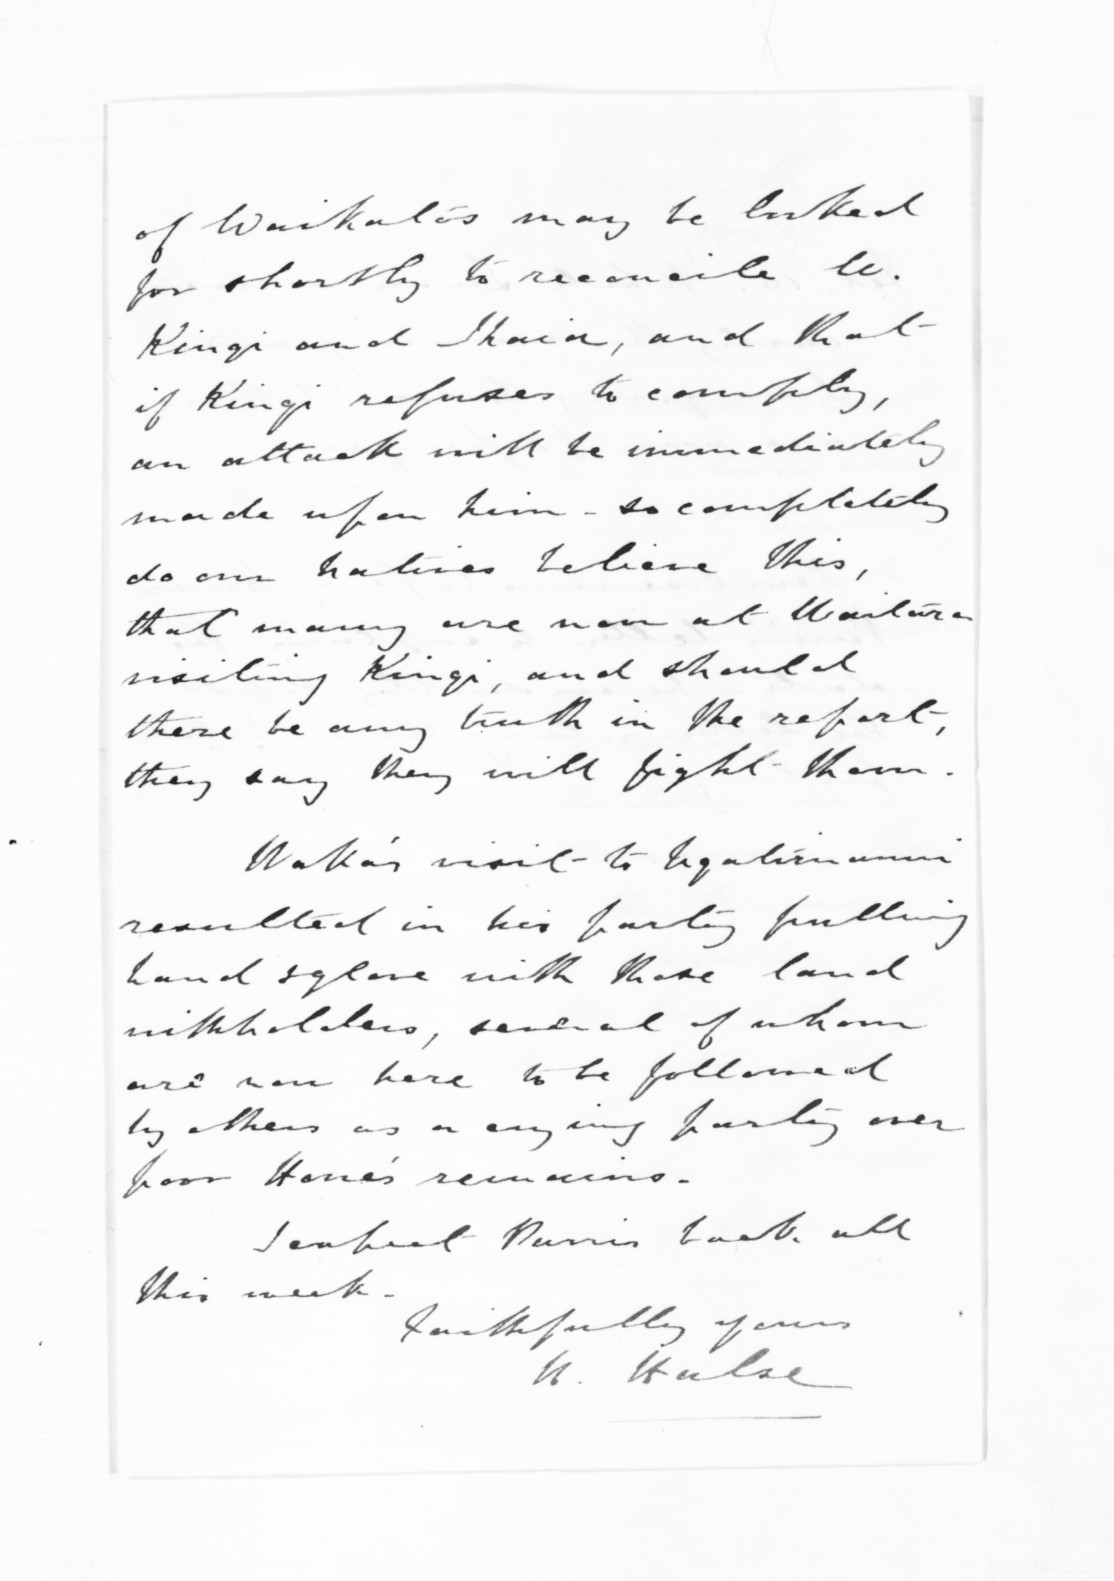 of Waikatos may be looked
for shortly to reconcile W.
Kingi and Ihaia, and that
if Kingi refuses to comply,
an attack will be immediately
made upon him - so completely
do our natives believe this,
that many are now at Waitara
visiting Kingi, and should
there be any truth in the report,
they say they will fight them.
Waka's visit to Ngatiruanui
resulted in his party pulling
hand & glove with those land
withholders, several of whom
are now here to be followed
by others as a crying party over
poor Hone's remains.
I expect Parris back all
this week.
Faithfully yours
H. Halse